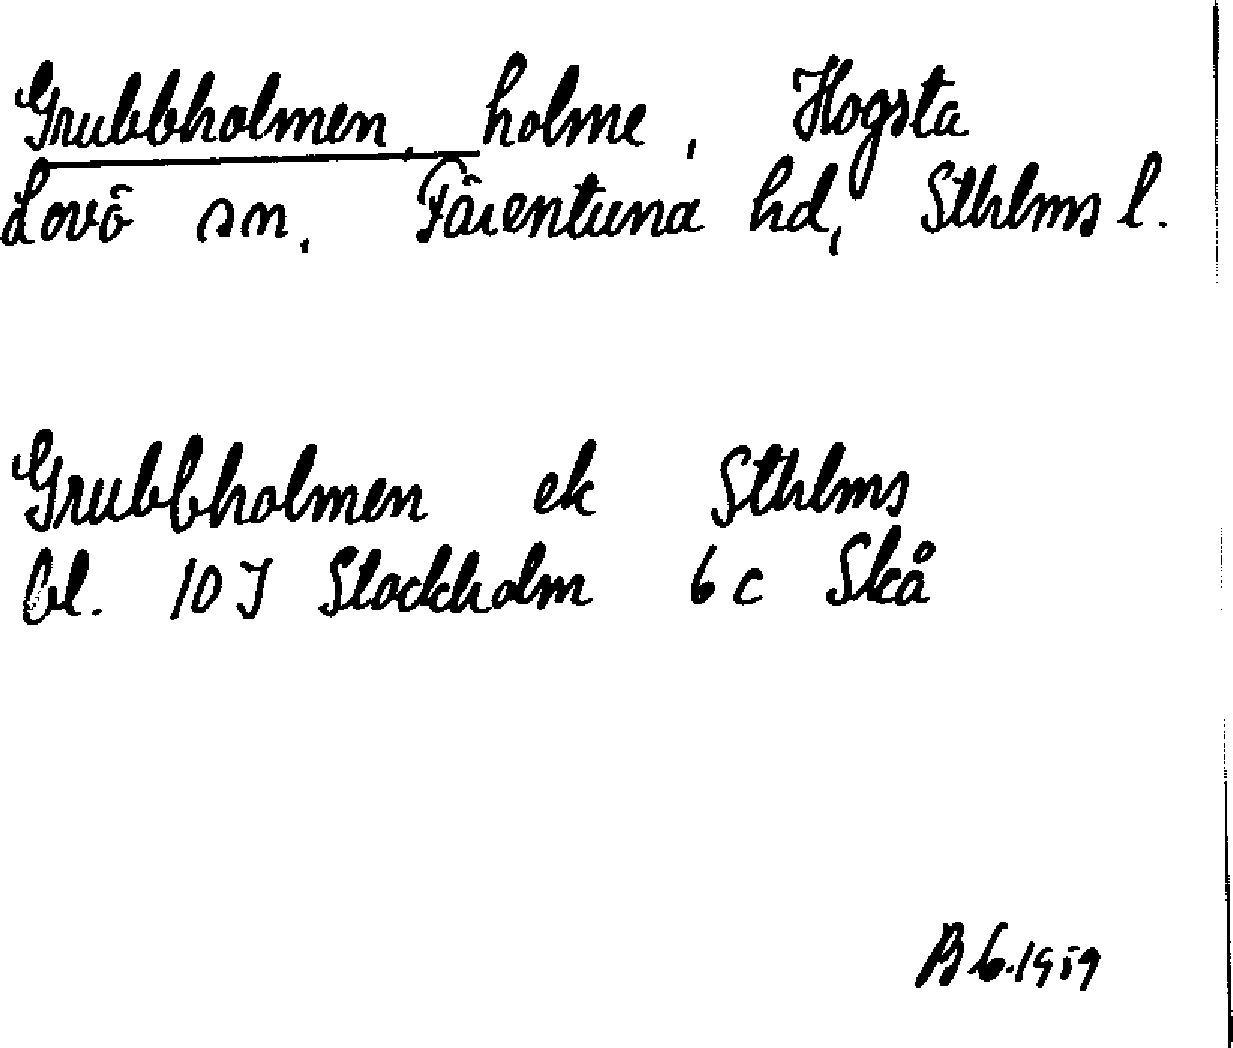 Grubbholmen, holme, Hogsta
Lovö sn, Färentuna hd, Sthlms l.
Grubbholmen ek Sthlms
bl. 10 J Stockholm 6 c Skå